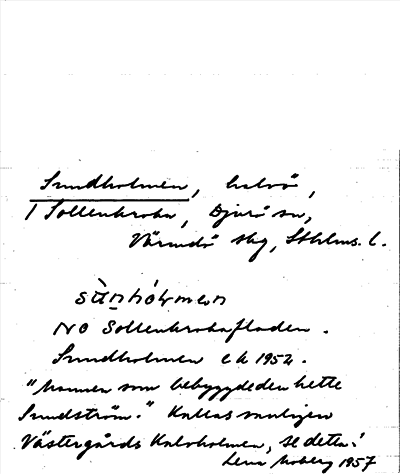 Sundholmen, halvö,
i Sollenkroka, Djurö sn,
Värmdö skg, Sthlms. l.
sùn̠hólmen
NO Sollenkrokafladen.
Sundholmen ek 1952.
"Mannen som bebyggde den hette
Sundström." Kallas vanligen
Västergårds Kalvholmen, se detta!
Lena Moberg 1957